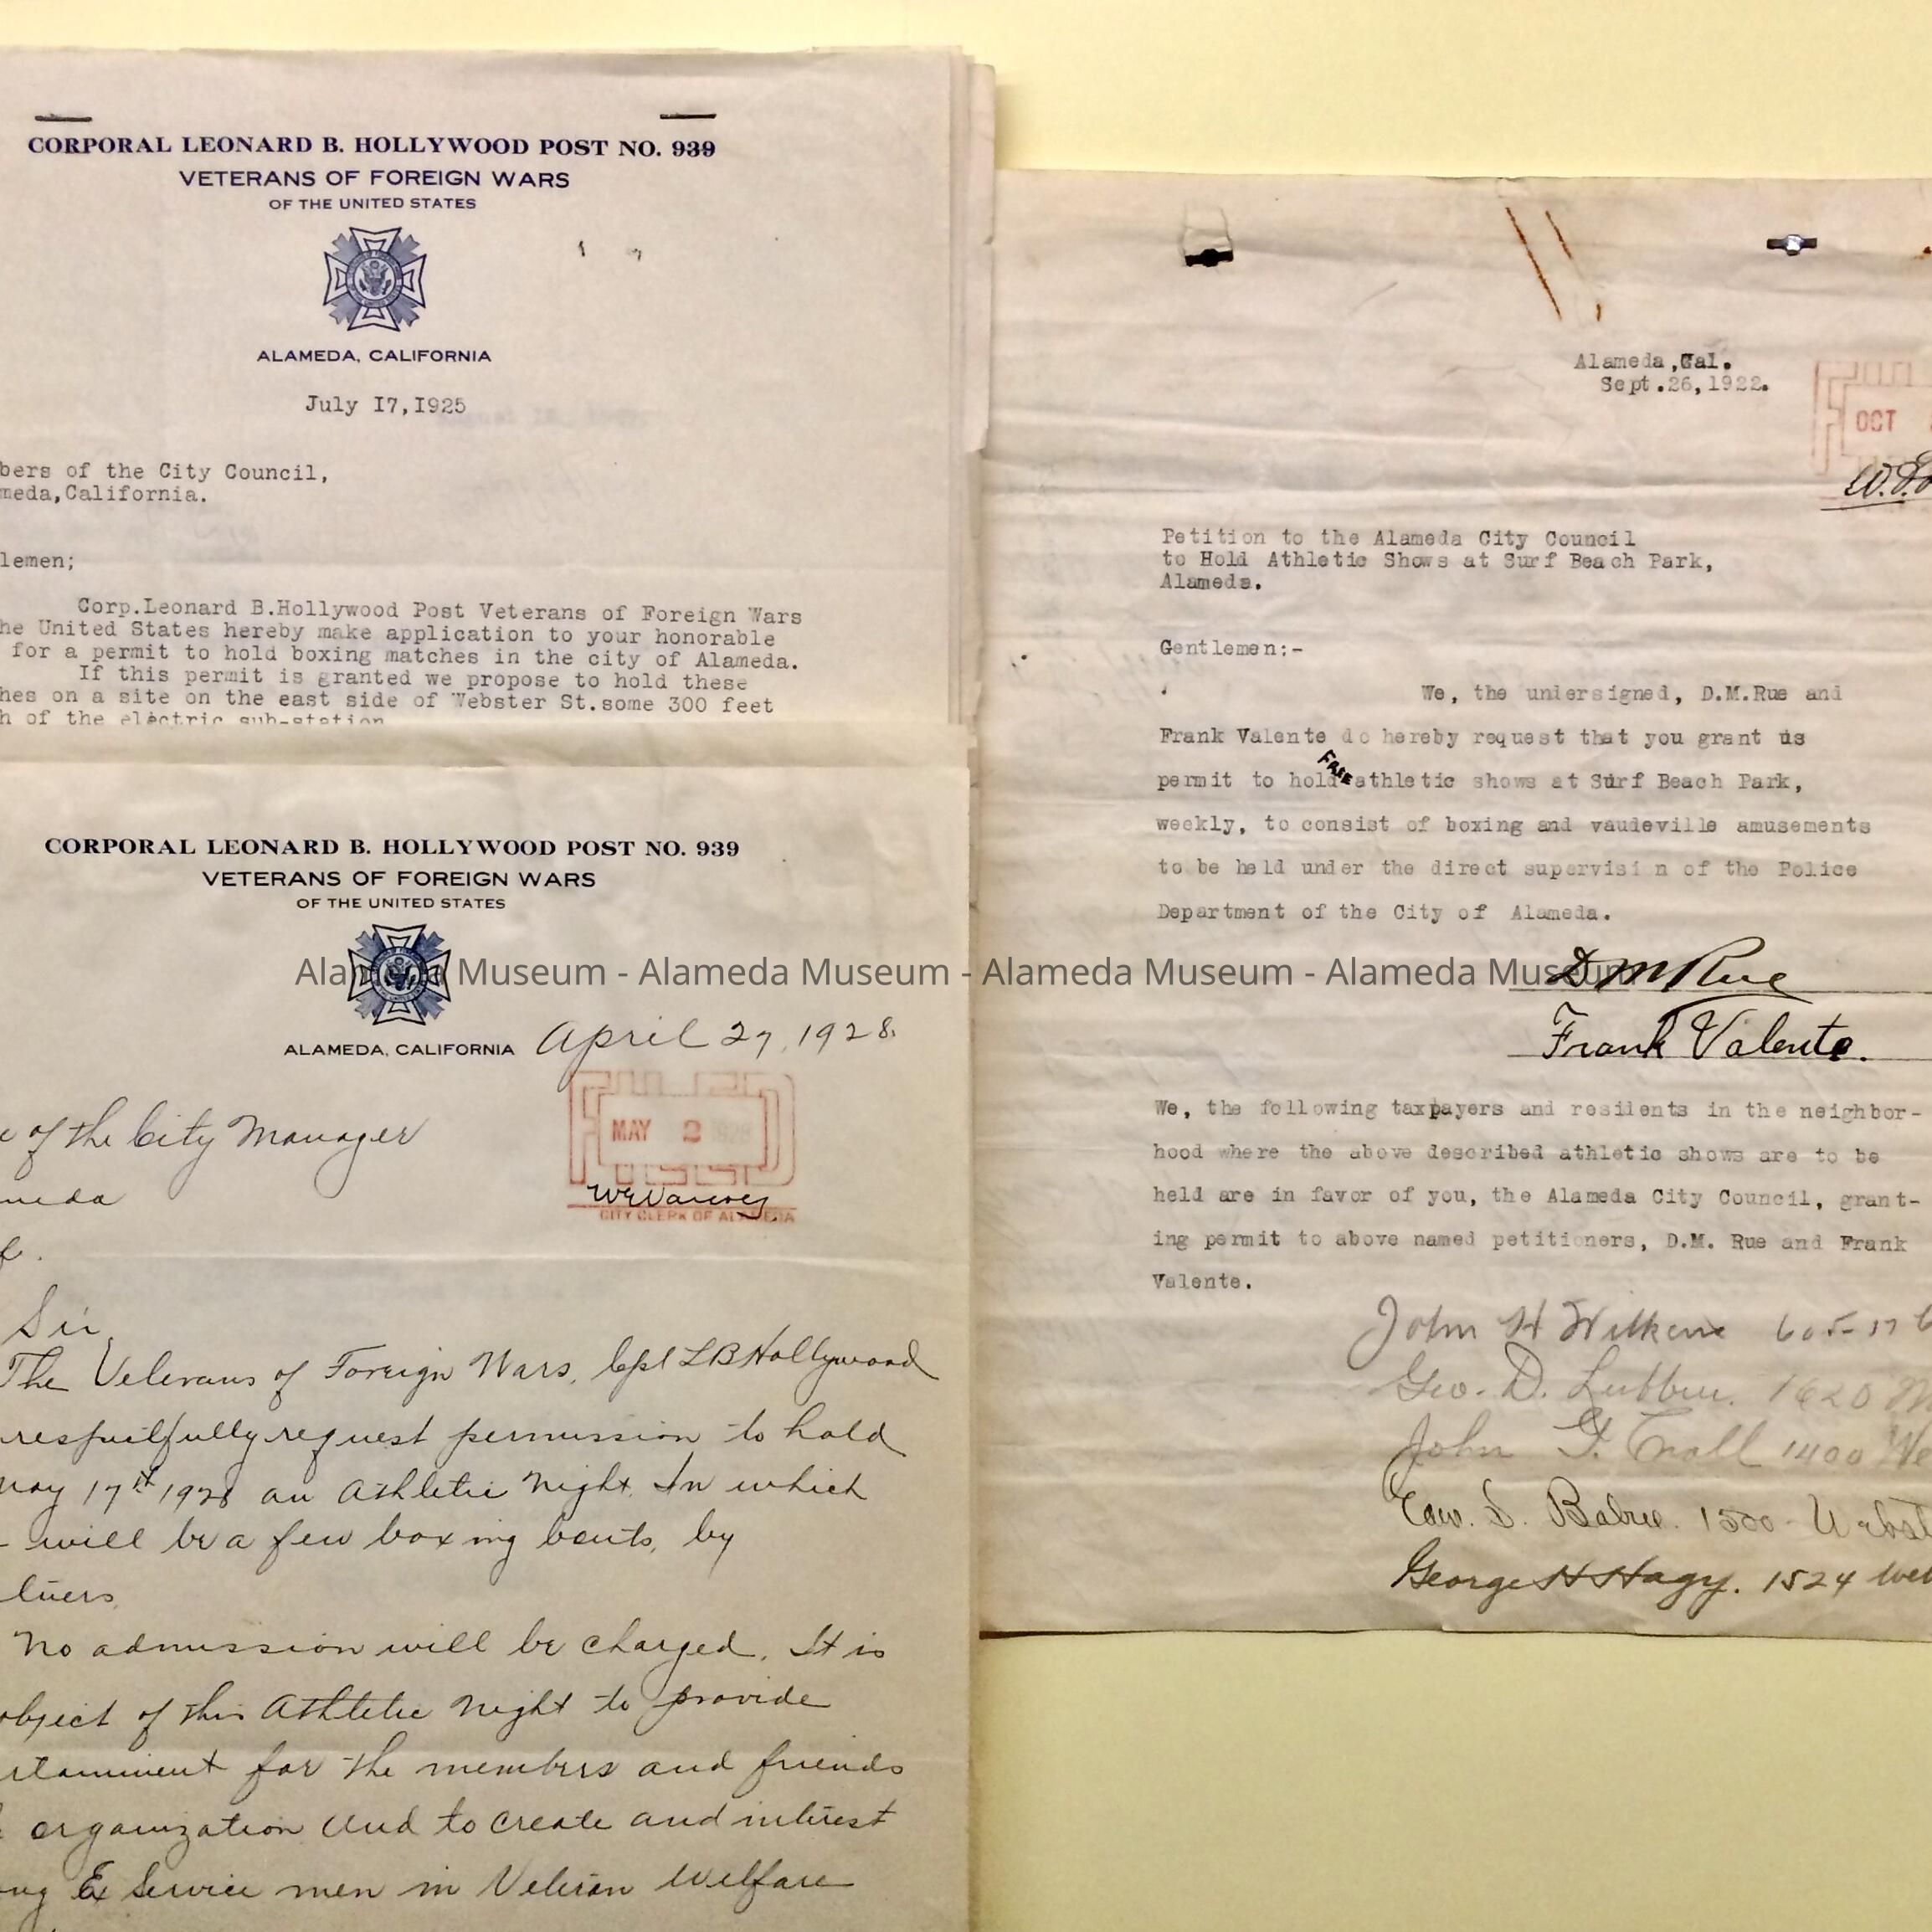 CORPORAL LEONARD B. HOLLYWOOD POST NO. 939
VETERANS OF FOREIGN WARS
OF THE UNITED STATES
ALAMEDA, CALIFORNIA
July I7,I925
bers of the City Council,
meda,California.
lemen;
Corp.Leonard B.Hollywood Post Veterans of Foreign Wars
he United States hereby make application to your honorable
for a permit to hold boxing matches in the city of Alameda.
If this permit is granted we propose to hold these
hes on a site on the east side of Webster St.some 300 feet
h of the electric sub-station
CORPORAL LEONARD B. HOLLYWOOD POST NO. 939
VETERANS OF FOREIGN WARS
OF THE UNITED STATES
ALAMEDA, CALIFORNIA
April 27, 1928.
MAY 2
CITY CLERK OF ALAMEDA
e of the City Manager
meda
f.
Sir,
The Veterans of Foreign Wars, Cpl LB Hollywood
respectfully request permission to hold
May 17th 1928 an Athletic Night. In which
will be a few boxing bouts, by
No admission will be charged. It is
object of this Athletic Night to provide
rtainment for the members and friends
organization and to create and interest
ong Ex Service men in Veteran Welfare
Alameda,Cal.
Sept.26,1922.
OCT
Petition to the Alameda City Council
to Hold Athletic Shows at Surf Beach Park,
Alameda.
Gentlemen:-
We, the undersigned, D.M.Rue and
Frank Valente do hereby request that you grant us
FREE
permit to hold athletic shows at Surf Beach Park,
weekly, to consist of boxing and vaudeville amusements
to be held under the direct supervision of the Police
Department of the City of Alameda.
D M Rue
Frank Valente.
We, the following taxpayers and residents in the neighbor-
hood where the above described athletic shows are to be
held are in favor of you, the Alameda City Council, grant-
ing permit to above named petitioners, D.M. Rue and Frank
Valente.
John H Wilkens 605-17
Geo. D. 1620
John 1400 We
1500 Webst
George H Hagy. 1524 Web
Alameda Museum - Alameda Museum - Alameda Museum - Alameda Museum